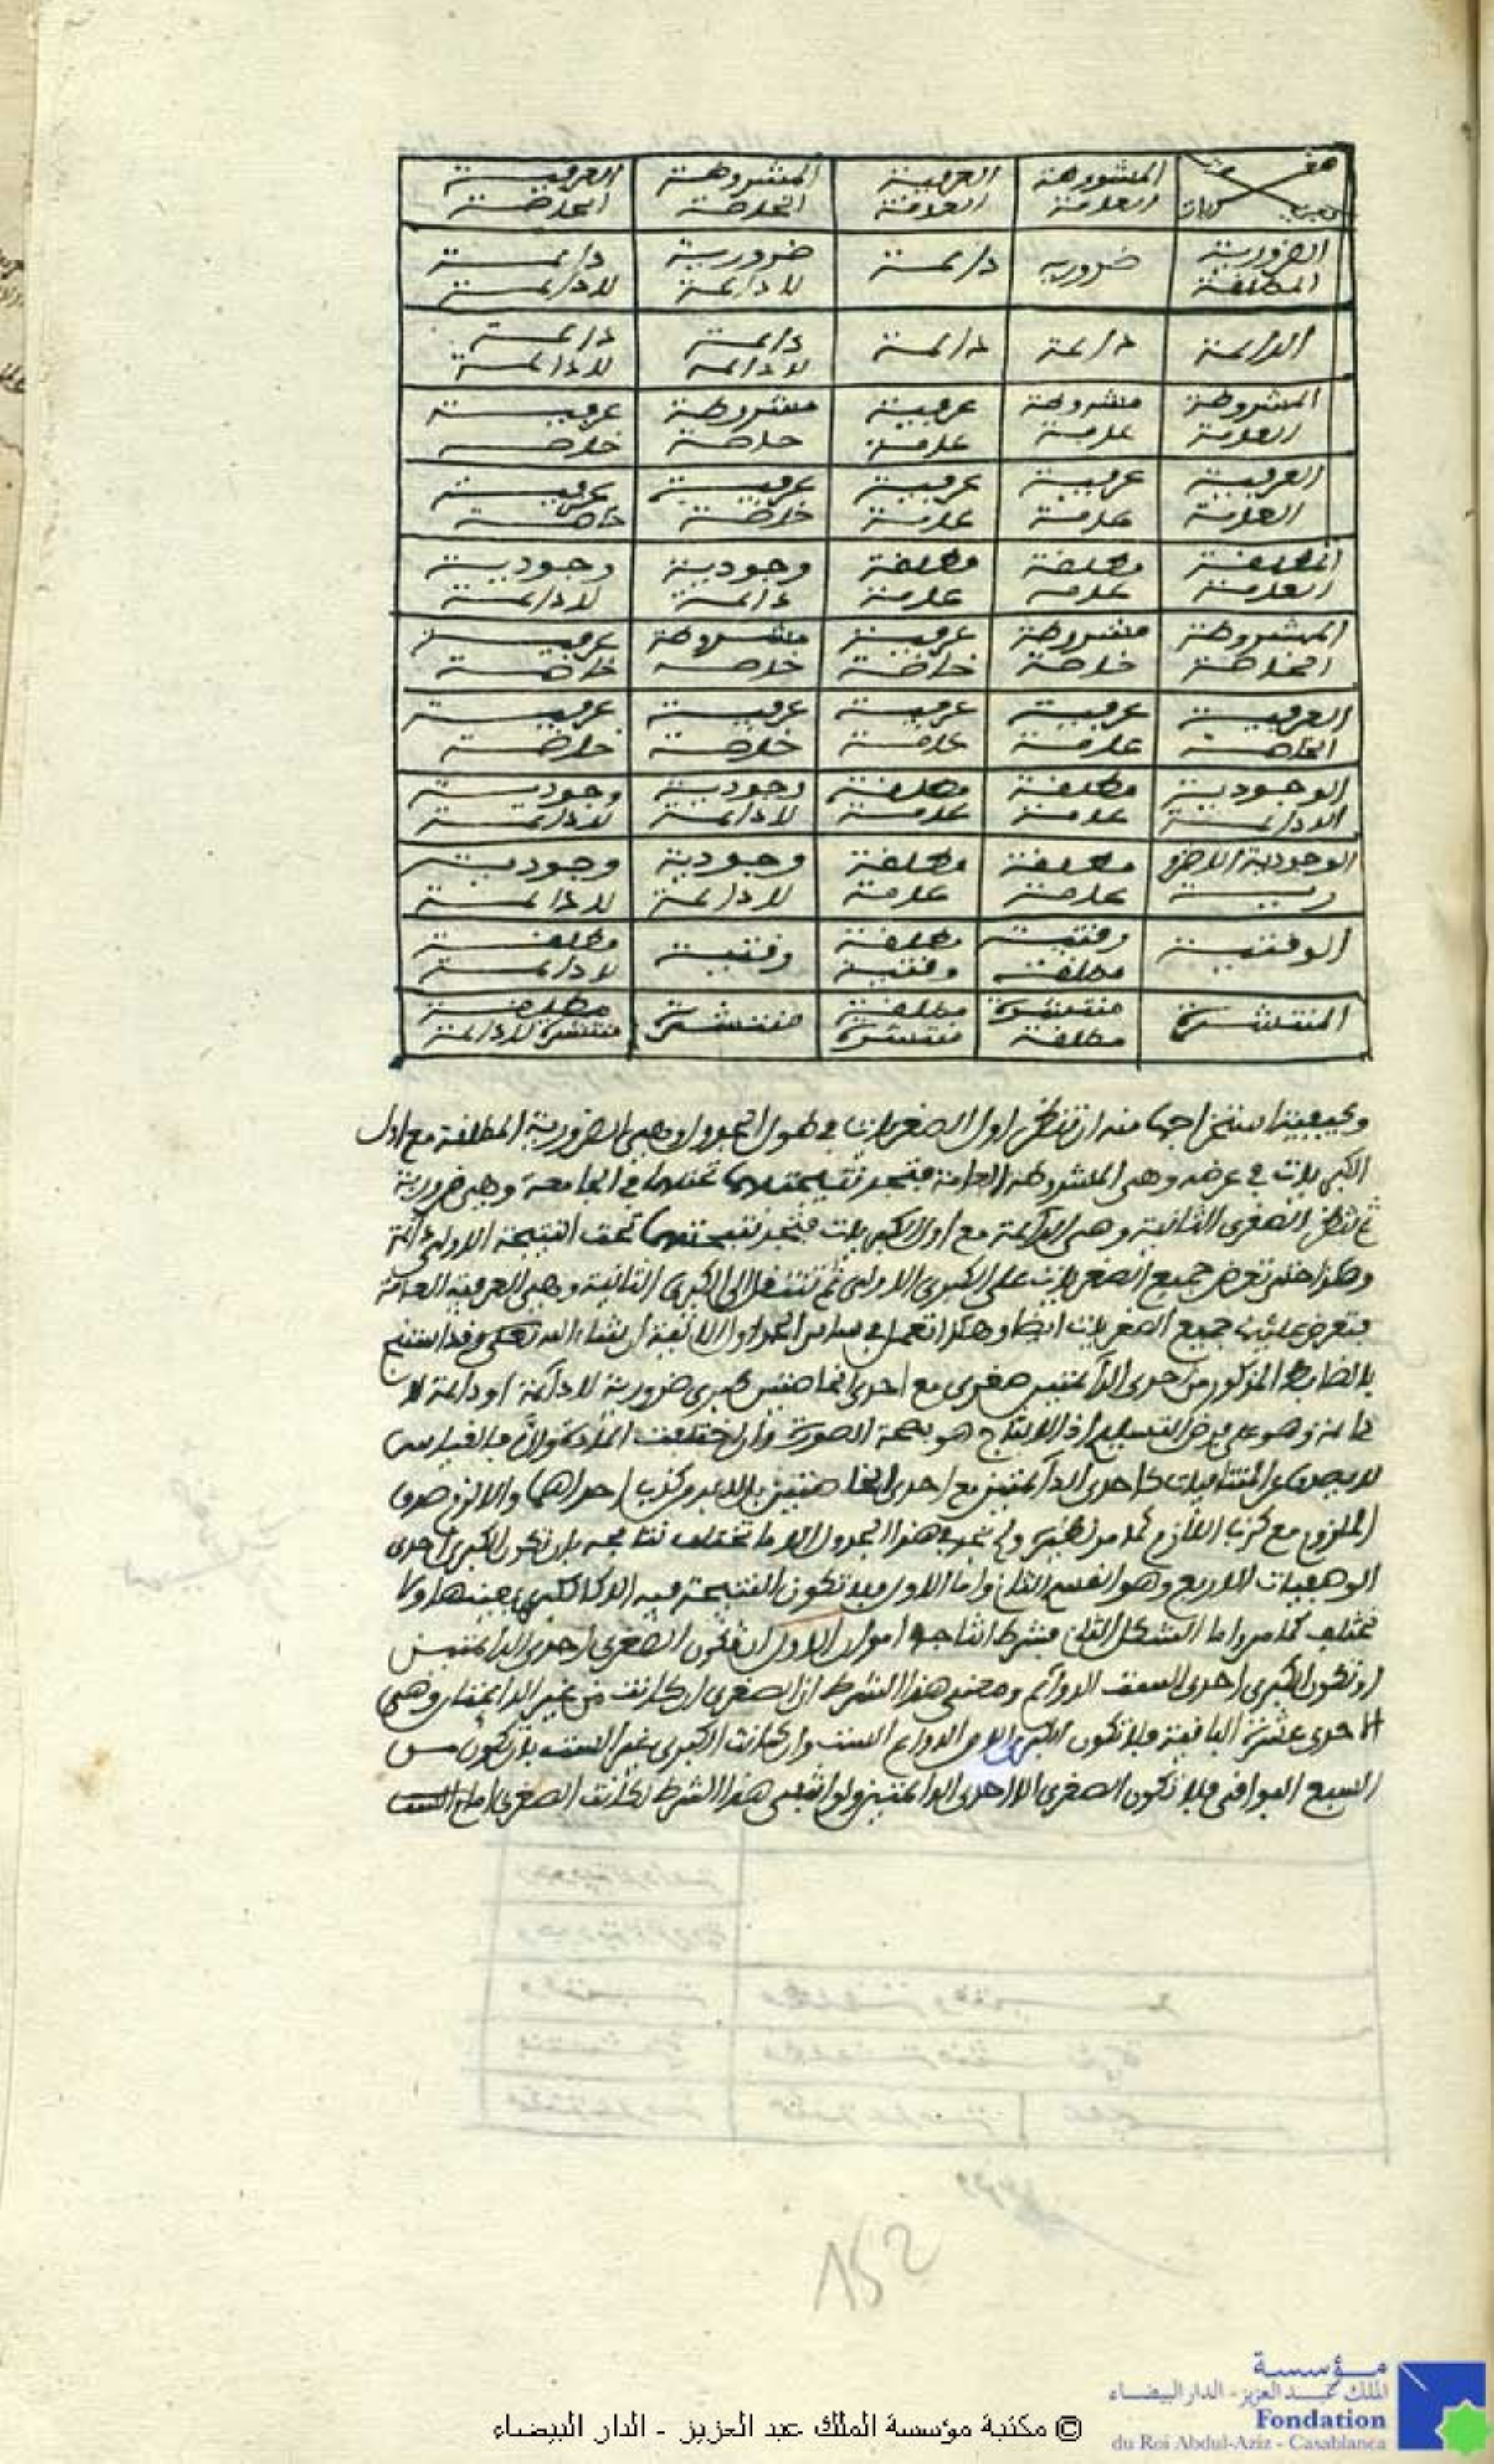 صغريات كبريات
المشروطة العامة | العرفية العامة | المشروطة الخاصة | العرفية الخاصة
الضرورية المطلقة | ضرورية | دائمة | ضرورية لا دائمة | دائمة لا دائمة
الدائمة | دائمة | دائمة | دائمة لا دائمة | دائمة لا دائمة
المشروطة العامة | مشروطة عامة | عرفية عامة | مشروطة خاصة | عرفية خاصة
العرفية العامة | عرفية عامة | عرفية عامة | عرفية خاصة | عرفية خاصة
المطلقة العامة | مطلقة عامة | مطلقة عامة | وجودية دائمة | وجودية لا دائمة
المشروطة الخاصة | مشروطة خاصة | عرفية خاصة | مشروطة خاصة | عرفية خاصة
العرفية الخاصة | عرفية عامة | عرفية عامة | عرفية خاصة | عرفية خاصة
الوجودية اللادائمة | مطلقة عامة | مطلقة عامة | وجودية لا دائمة | وجودية لا دائمة
الوجودية اللاضرورية | مطلقة عامة | مطلقة عامة | وجودية لا دائمة | وجودية لا دائمة
الوقتية | وقتية مطلقة | مطلقة وقتية | وقتية | مطلقة لا دائمة
المنتشرة | منتشرة مطلقة | مطلقة منتشرة | منتشرة | مطلقة منتشرة لا دائمة
وكيفية استخراجها منه ان تنظر اول الصغريات في طول الجدول وهي الضرورية المطلقة مع اول
الكبريات في عرضه وهي المشروطة العامة فتجد نتيجتهما تحتهما في الجامعة وهي ضرورية
ثم تنظر الصغرى الثانية وهي الدائمة مع اول الكبريات فتجد نتيجتهما تحت النتيجة الاولى دائمة
وهكذا حتى تعرض جميع الصغريات على الكبرى الاولى ثم تنتقل الى الكبرى الثانية وهي العرفية العامة
فتعرض عليها جميع الصغريات ايضا وهكذا تعمل في سائر الجداول الاتية ان شاء الله تعلى وقد استنتج
بالضابط المذكور من احدى الدائمتين صغرى مع احدى الخاصتين كبرى ضرورية لا دائمة او دائمة لا
دائمة وهو على فرض التسليم اذ الانتاج هو بصحة الصورة وان اختلفت المادة والا فالقياس
لا يصدق عن المتنافيات كاحدى الدائمتين مع احدى الخاصتين بل لا بد من كذب احداهما والا لزم صدق
الملزوم مع كذب اللازم كما مر نظيره ولم نجد في هذا الجدول الا ما تختلف نتائجه بان تكون الكبرى احدى
الوصفيات الاربع وهو القسم الثاني واما الاول فلا تكون النتيجة فيه الا كالكبرى بعينها ولا
تختلف كما مر واما الشكل الثاني فشرط انتاجه امران الاول ان تكون الصغرى احدى الدائمتين
او تكون الكبرى احدى الست الدوائم ومعنى هذا الشرط ان الصغرى ان كانت من غير الدائمتين وهي
الاحدى عشرة الباقية فلا تكون الكبرى الا من الدوائم الست وان كانت الكبرى غير الست بان تكون من
السبع البواقي فلا تكون الصغرى الا احدى الدائمتين ولو انتفى هذا الشرط لكانت الصغرى
152
مؤسسة
الملك عبد العزيز - الدار البيضاء
Fondation
du Roi Abdul-Aziz - Casablanca
© مكتبة مؤسسة الملك عبد العزيز - الدار البيضاء